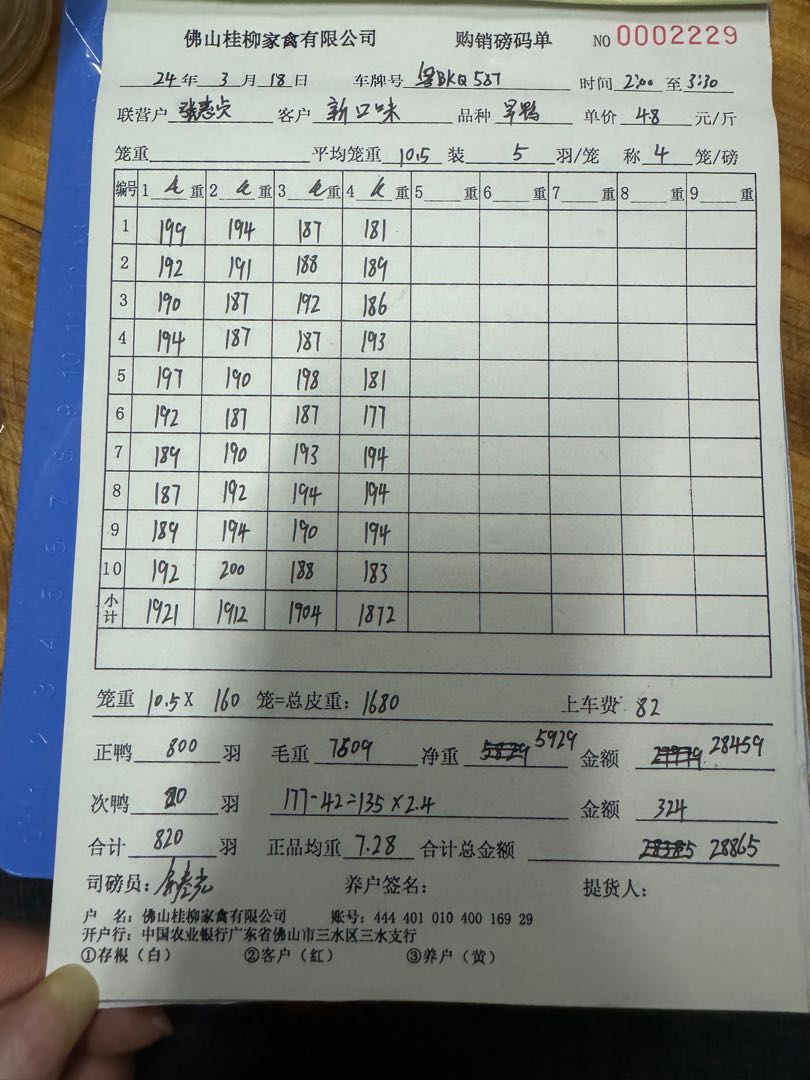 佛山桂柳家禽有限公司 购销磅码单 NO 0002229
24年 3月 18日 车牌号 粤BKQ587 时间 2:00 至 3:30
联营户 客户 新口味 品种 旱鸭 单价 4.8 元/斤
笼重 平均笼重 10.5 装 5 羽/笼 称 4 笼/磅
编号 1 重 2 重 3 重 4 重 5 重 6 重 7 重 8 重 9 重
1 199 194 187 181
2 192 191 188 189
3 190 187 192 186
4 194 187 187 193
5 197 190 198 181
6 192 187 187 177
7 189 190 193 194
8 187 192 194 194
9 189 194 190 194
10 192 200 188 183
小计 1921 1912 1904 1872
笼重 10.5X 160 笼=总皮重: 1680 上车费 82
正鸭 800 羽 毛重 7609 净重 5929 金额 28459
次鸭 20 羽 177-42=135×2.4 金额 324
合计 820 羽 正品均重 7.28 合计总金额 28865
司磅员: 养户签名: 提货人:
户 名: 佛山桂柳家禽有限公司 账号: 444 401 010 400 169 29
开户行: 中国农业银行广东省佛山市三水区三水支行
①存根(白) ②客户(红) ③养户(黄)